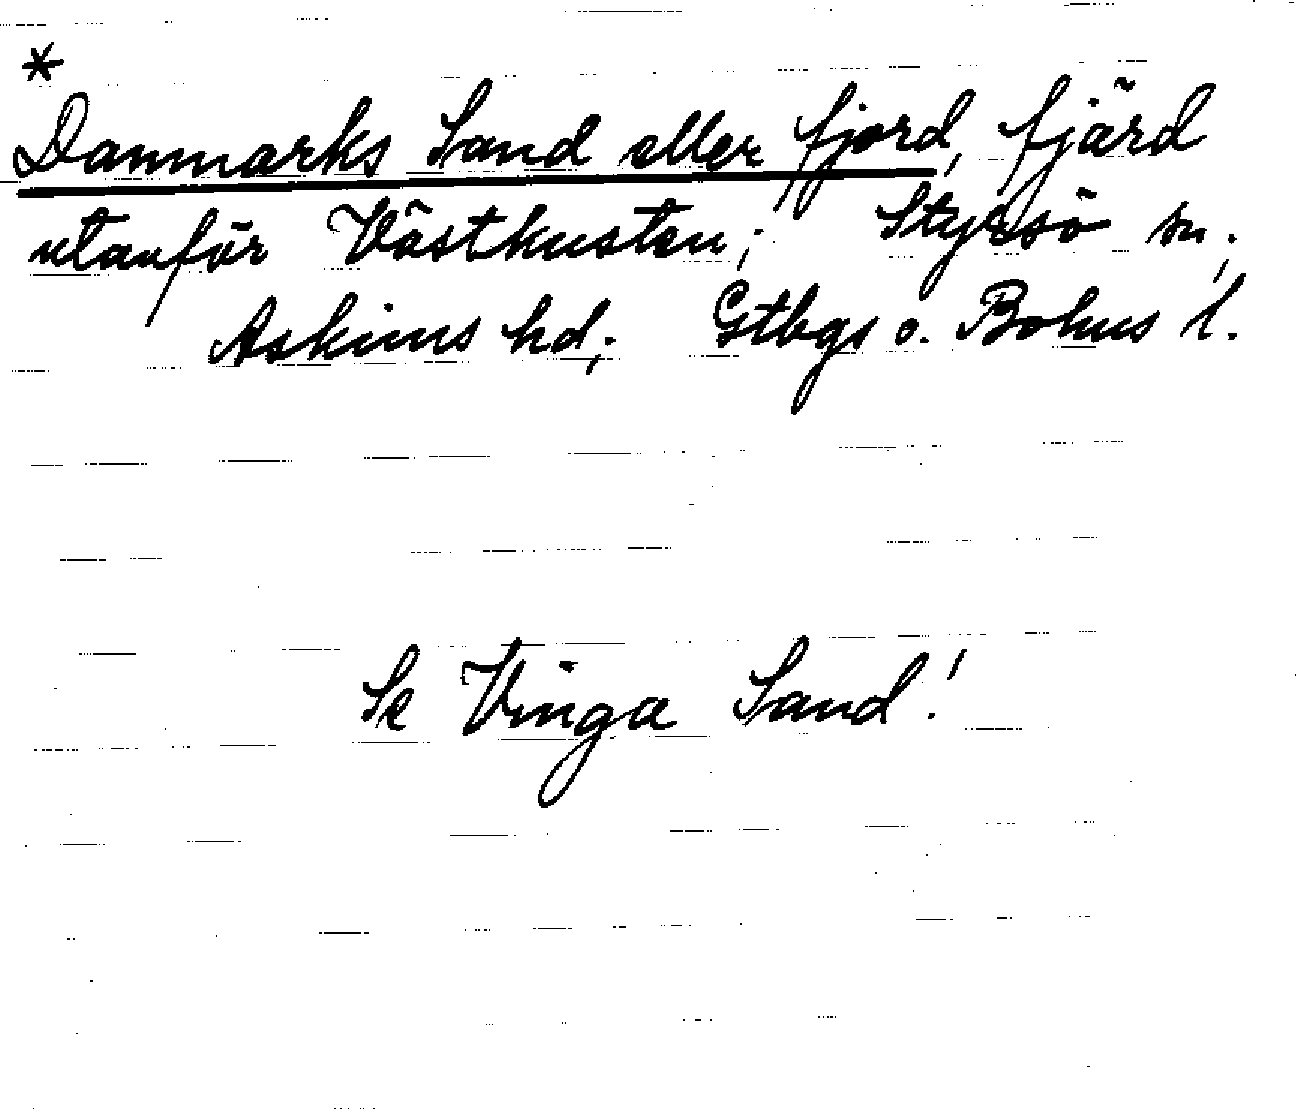 *
Danmarks Sand eller fjord, fjärd
utanför Västkusten; Styrsö sn;
Askims hd; Gtbgs o. Bohus l.
Se Vinga Sand!